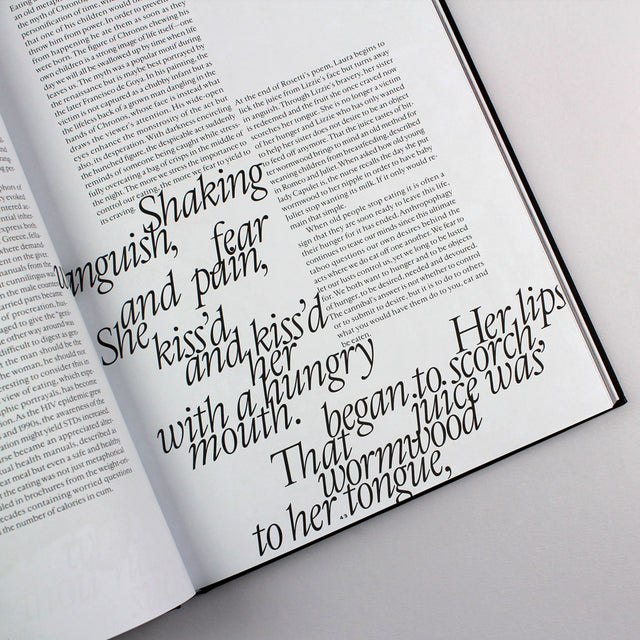 phors of
y evoked
ntered ac-
ential infer-
xpress both
. Greece, fella-
where demand.
manuals from the
the male counter-
ried parts became
of procreation,
aged to give the
other way around was
difficult to digest
ne man should be the
woman, he should not
eresting to consider this in
view of eating, which
aphic portrayals, has become
As the HIV epidemic grew
and 1990s, the awareness of the
ation might yield STDs increased.
t became an appreciated alter-
ual health manuals, described
meal but even a safe and healthy
the eating was not just metaphorical
aled in brochures from the weight-on-
ecades containing worried questions
the number of calories in cum.
an old metaphor,
the myth of Chronos,
one of his children would
throw him from power. In order to
happening he ate them as soon as they
were born. The figure of Chronos chewing his
own children is a strong image of life itself—one
day we all be swallowed up by time when life
leaves us. The myth was a popular motif during
the renaissance but is maybe best portrayed by
the later Francisco de Goya. In his painting, the
victim is not captured as a chubby infant but as
the lifeless back of a grown man dangling in the
hands of Chronos, whose face is instead what
draws the viewer's attention. His wide open
eyes enhance the monstrosity of the act but
also, its desperation. With darkness encircling
the hunched figure, the despicable act suddenly
reminds of someone being caught while stress-
fully overeating a bag of crisps in the middle of
the night. The scene stress the importance to
control our eating, the way we are to yield to
its craving.
At the end of Rosetti's poem, Laura begins to
lick the juice from Lizzie's face but turns away
in anguish. Through Lizzie's bravery, her sister
is redeemed and the fruit she once craved now
scorches her tongue. She is no longer a victim
of her hunger and Lizzie who has only wanted
to help her sister does not desire to be an object
to feed off anymore. That the juice tastes of
wormwood brings to mind an old method for
weaning children from breastfeeding, described
in Romeo and Juliet. When asked how old young
lady Capulet is, the nurse recalls the day she put
wormwood to her nipple in order to have baby
Juliet stop wanting its milk. If it was only
main that simple.
When old people stop eating it is often a
sign that they are soon ready to leave this life,
to hunger for it has ended. Anthropophagy
continues to tease our minds since this ultimate
taboo questions our own desires behind the
ways where we do ear off one another. We fear to
let our lusts control us, yet we long to be lusted
for. We both want to hunger and to be objects
of hunger, to be desired, needed and devoured.
The cannibal's answer is not whether to control
or to submit to desire, but it is to do to others
what you would have them do to you, eat and
be eaten.
Shaking
Vanguish, fear
and pain,
She kiss'd
and kiss'd
her
with a hungry
mouth.
Her lips
began to scorch,
That juice was
wormwood
to her tongue,